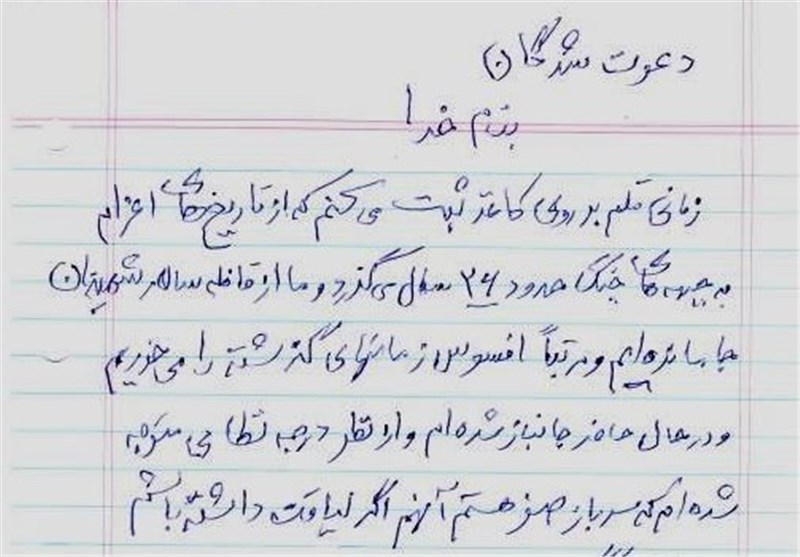 دعوت شدگان
بنام خدا
زمانی قلم بر روی کاغذ ثبت می کنم که از تاریخ های اعزام
به جبهه های جنگ حدود ۳۶ سال می گذرد و ما از قافله سالار شهیدان
جا مانده ایم و مرتباً افسوس زمانهای گذشته را می خوریم
و در حال حاضر جانباز شده ام و از نظر درجه نظامی متوجه
شده ام که سرباز صفر هستم آنهم اگر لیاقت داشته باشم